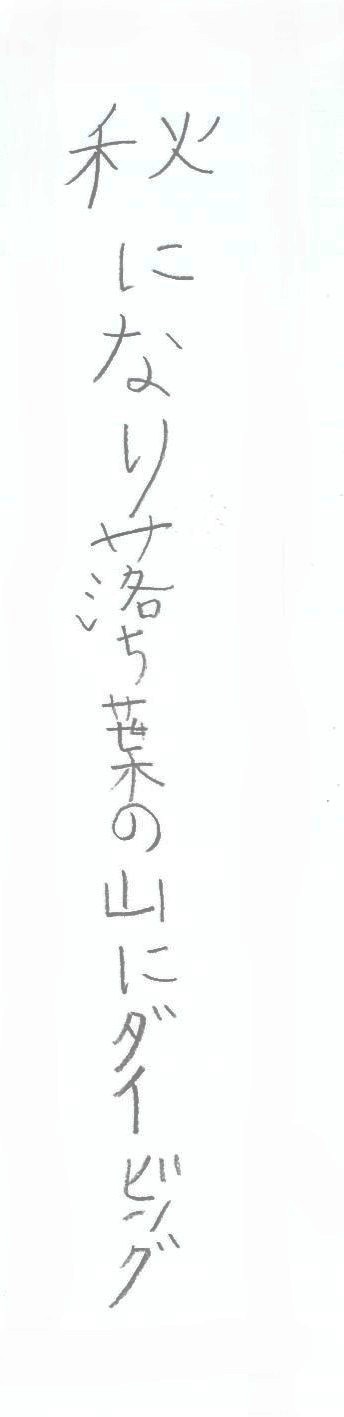 秋になり落ち葉の山にダイビング